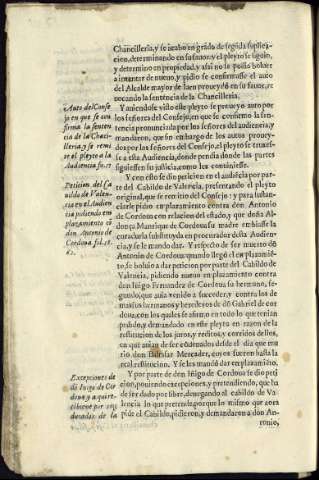 Chancilleria, y se acabo en grado de segũda suplica-
cion, determinando en su fauor, y el pleyto se siguio,
y determino en propiedad, y assi no se podia boluer
a intentar de nueuo, y pidio se confirmasse el auto
del Alcalde mayor de Iaen proueydo en su fauor, re-
uocando la sentencia de la Chancilleria.
Auto del Conse
jo en que se con
firma la senten
cia de la Chan
cilleria, y se remi
te el pleyto a la
Audiencia
Y auiendose visto este pleyto se proueyo auto por
los señores del Consejo, en que se confirmo la senten-
cia pronunciada por los señores del audiencia, y
mandaron, que sin embargo de los autos proueydos
por los señores del Consejo, el pleyto se truxes-
se a esta Audiencia, donde pendia donde las partes
siguiessen su justicia, como les conuiniesse.
Peticion del Ca
uildo de Valen
cia en el Audien
cia pidiendo em
plazamiento cõ
don Antonio de
Cordoua fol.
62.
Y con esto se dio peticion en el audiẽcia por par-
te del Cabildo de Valencia, presentando el pleyto
original, que se remitio del Consejo: y para substan-
ciarle pidio emplazamiento contra don Antonio
de Cordoua con relacion del estado, y que doña Al-
donça Manrique de Cordoua su madre embiasse la
curaduria substituyda en procurador desta Audien-
cia, y se le mandò dar. Y respecto de ser muerto dõ
Antonio de Cordoua quando llegò el emplazamiẽ-
to, se boluio a dar peticion por parte del Cabildo de
Valencia, pidiendo nueuo emplazamiento contra
don Iñigo Fernandez de Cordoua su hermano, se-
gundo, que auia venido a suceder, y contra los de
mas sus hermanos y herederos de dõ Gabriel de cor-
doua, con los quales se afirmo en todo lo que tenian
pedido, y demandado en este pleyto en razon de la
restitucion de los juros, y reditos, y corridos dellos,
en que auian de ser condenados desde el dia que mu-
rio don Baltasar Mercader, en que fuessen hasta la
real restitucion. Y se les mandò dar emplazamiẽto.
Excepciones de
dõ Iñigo de Cor
doua, y a que ar-
ticulos
Y por parte de don Iñigo de Cordoua se dio peti-
cion, poniendo excepciones, y pretendiendo, que ha
de ser dado por libre, denegando al cabildo de Va-
lencia lo que pretende, porque lo mismo que aora
pide el Cabildo, pidieron, y demandaron a don An-
tonio,